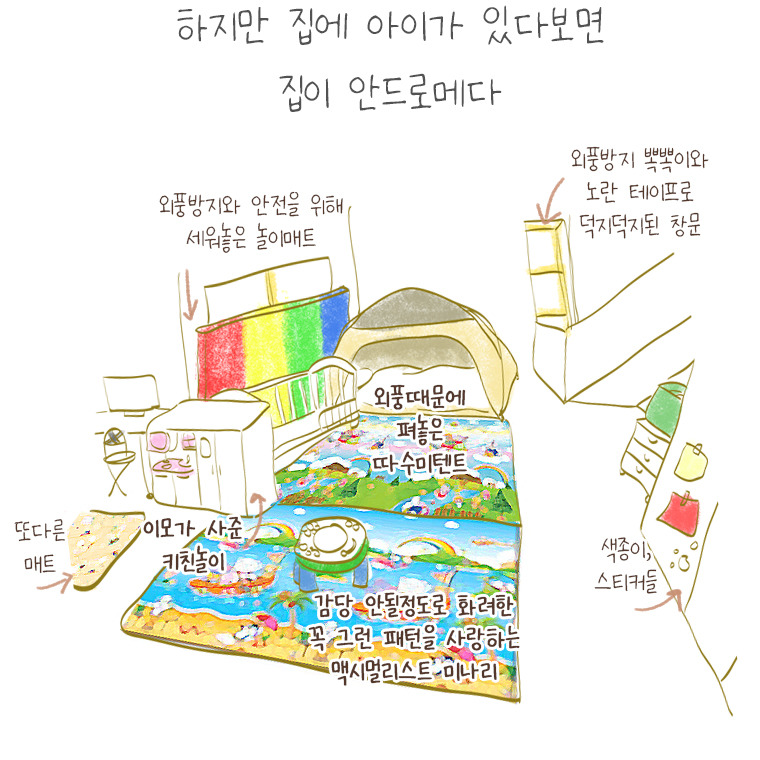 하지만 집에 아이가 있다보면
집이 안드로메다
외풍방지 뽁뽁이와
노란 테이프로
덕지덕지된 창문
외풍방지와 안전을 위해
세워놓은 놀이매트
외풍때문에
펴놓은
따수미텐트
또다른
매트
이모가 사준
키친놀이
색종이,
스티커들
감당 안될정도로 화려한
꼭 그런 패턴을 사랑하는
맥시멀리스트 미나리